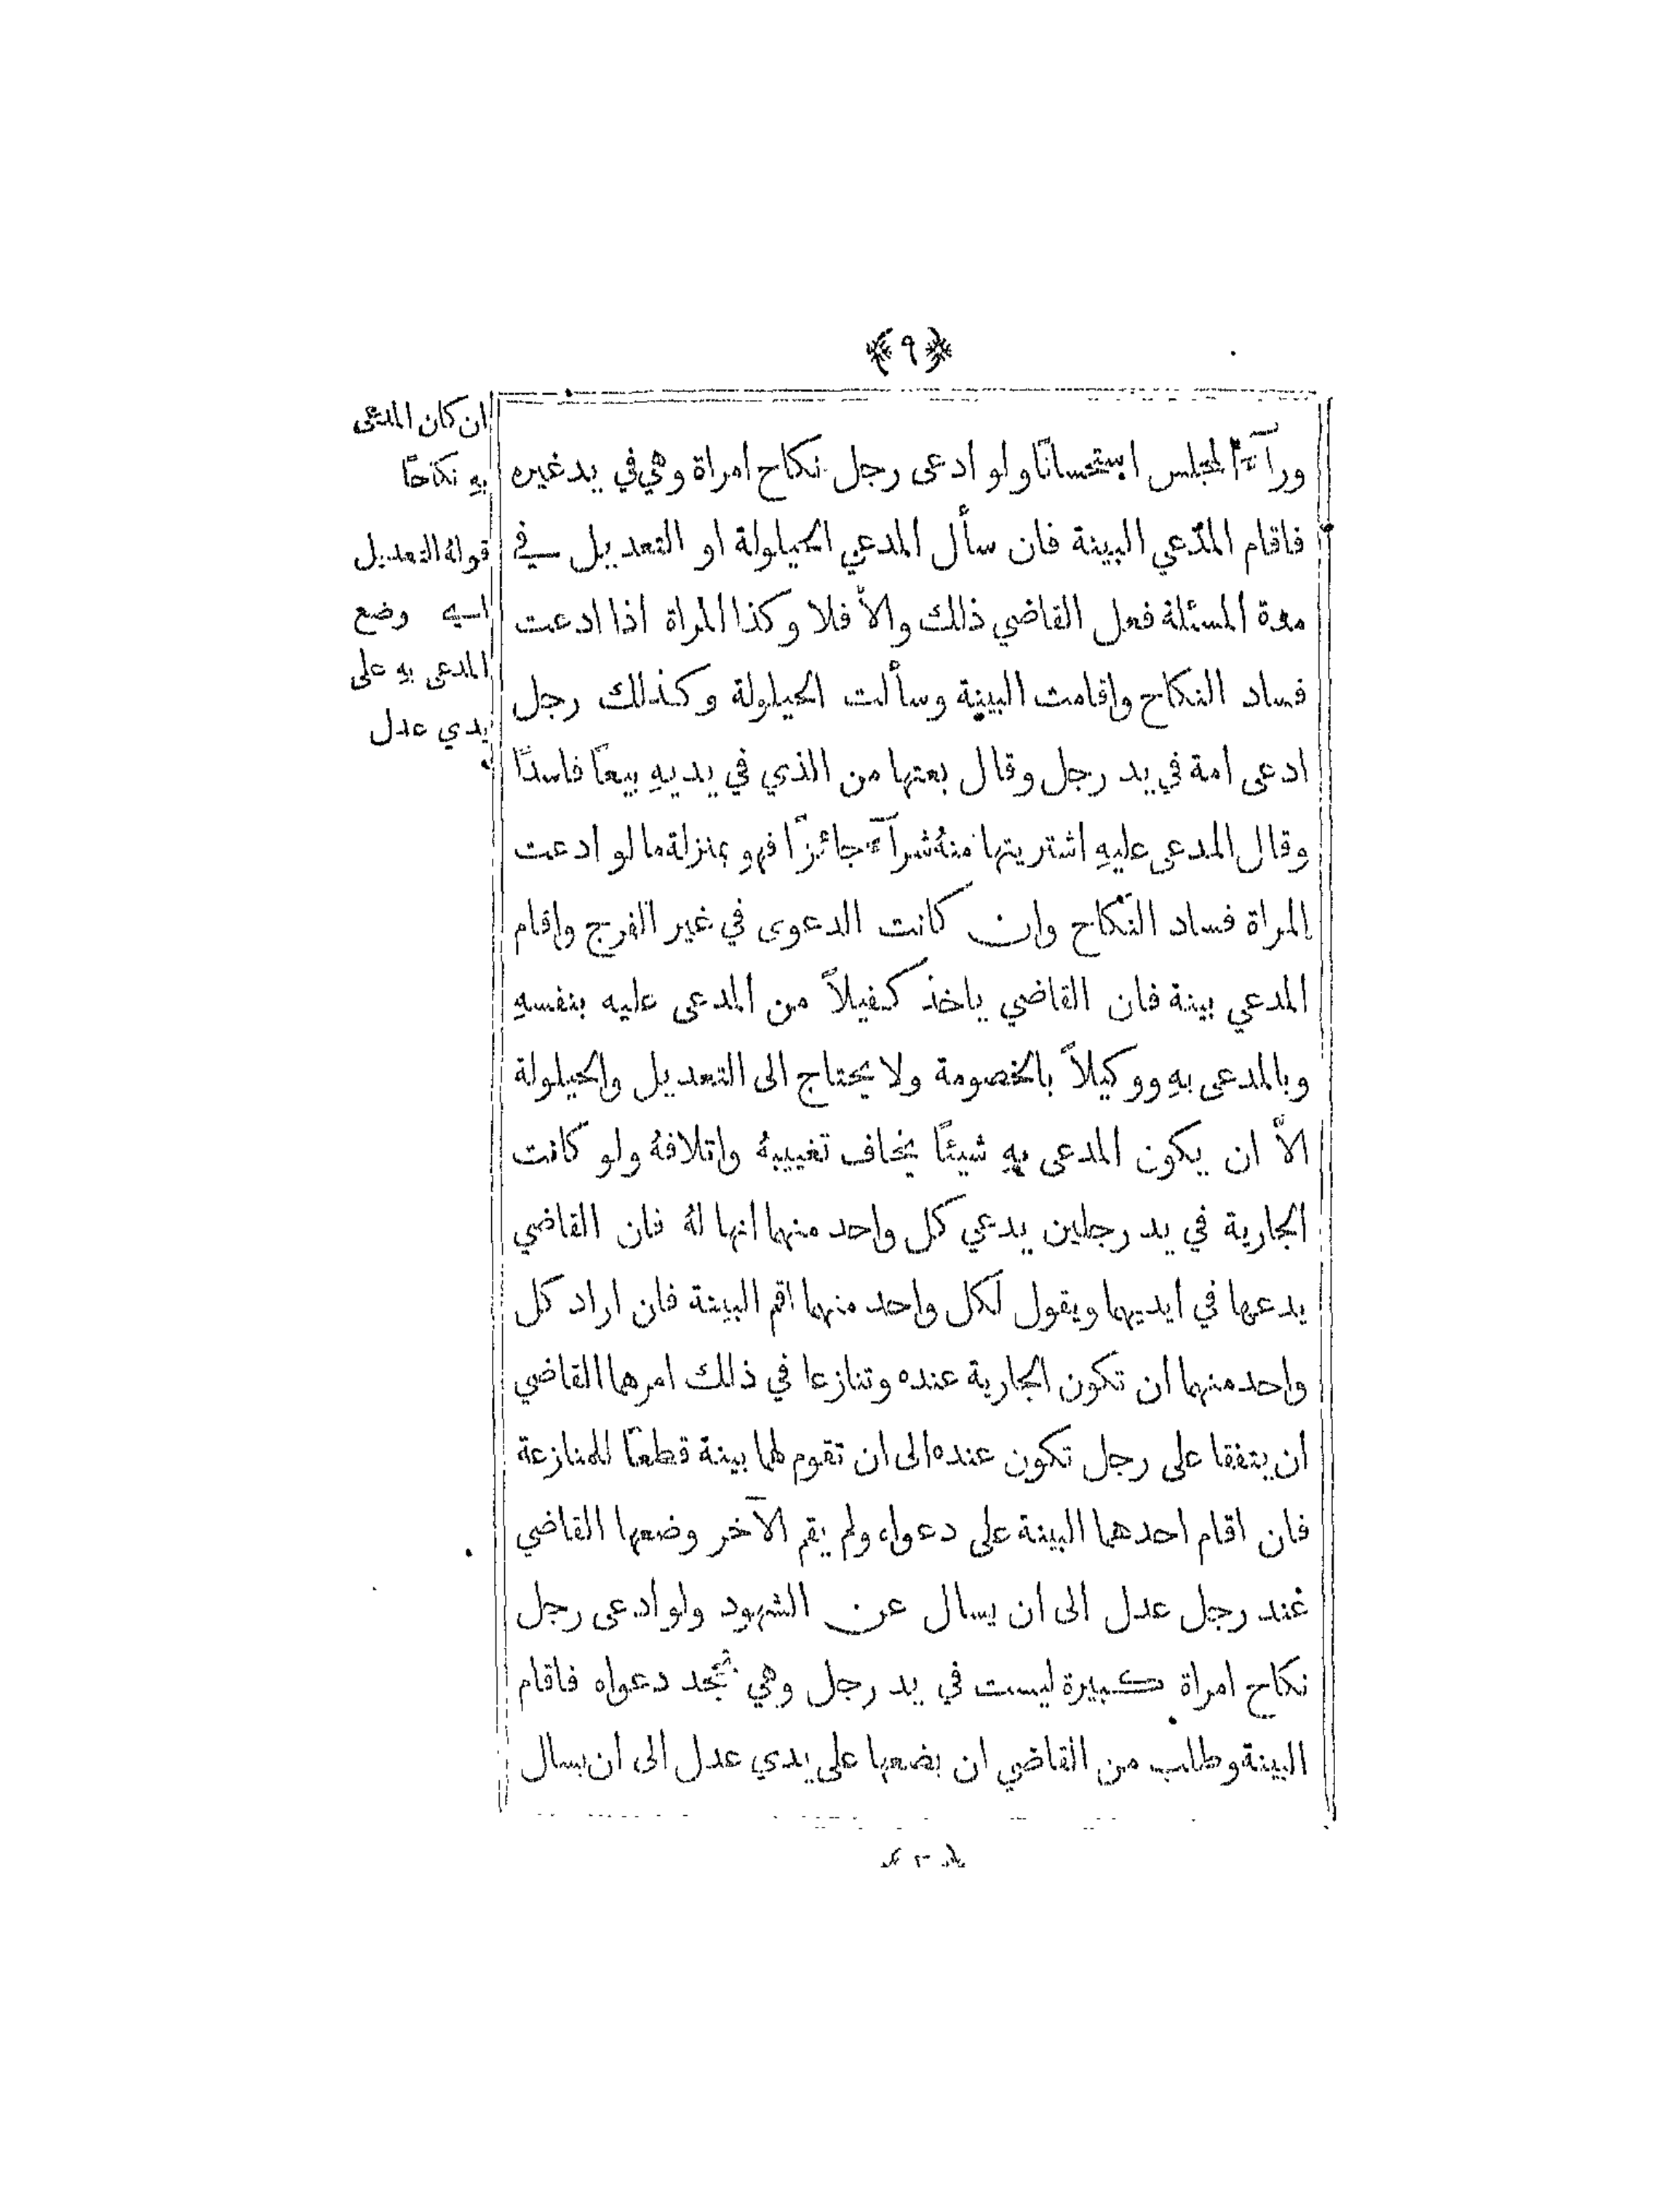 ﴿٩﴾
ورآءَ المجلس استحسانًا ولو ادعى رجل نكاح امراة وهي في يد غيره
فاقام المدّعي البينة فان سأل المدعي الحيلولة او التعديل في
مدة المسئلة فعل القاضي ذلك والاّ فلا وكذا المراة اذا ادعت
فساد النكاح واقامت البينة وسألت الحيلولة وكذلك رجل
ادعى امة في يد رجل وقال بعتها من الذي في يديهِ بيعًا فاسدًا
وقال المدعى عليهِ اشتريتها منهُ شرآءً جائزًا فهو بمنزلة ما لو ادعت
المراة فساد النكاح وان كانت الدعوى في غير الفرج واقام
المدعي بينة فان القاضي ياخذ كفيلاً من المدعى عليه بنفسهِ
وبالمدعى بهِ ووكيلاً بالخصومة ولا يحتاج الى التعديل والحيلولة
الاّ ان يكون المدعى بهِ شيئًا يخاف تغييبهُ واتلافهُ ولو كانت
الجارية في يد رجلين يدعي كل واحد منهما انها لهُ فان القاضي
يدعها في ايديهما ويقول لكل واحد منهما اقم البينة فان اراد كل
واحد منهما ان تكون الجارية عنده وتنازعا في ذلك امرهما القاضي
ان يتفقا على رجل تكون عنده الى ان تقوم لهما بينة قطعًا للمنازعة
فان اقام احدهما البينة على دعواه ولم يقم الآخر وضعها القاضي
عند رجل عدل الى ان يسال عن الشهود ولو ادعى رجل
نكاح امراة كبيرة ليست في يد رجل وهي تجحد دعواه فاقام
البينة وطلب من القاضي ان يضعها على يدي عدل الى ان يسال
ان كان المدعى
بهِ نكاحًا
قولهُ التعديل
اي وضع
المدعى بهِ على
يدي عدل
﴿٢﴾